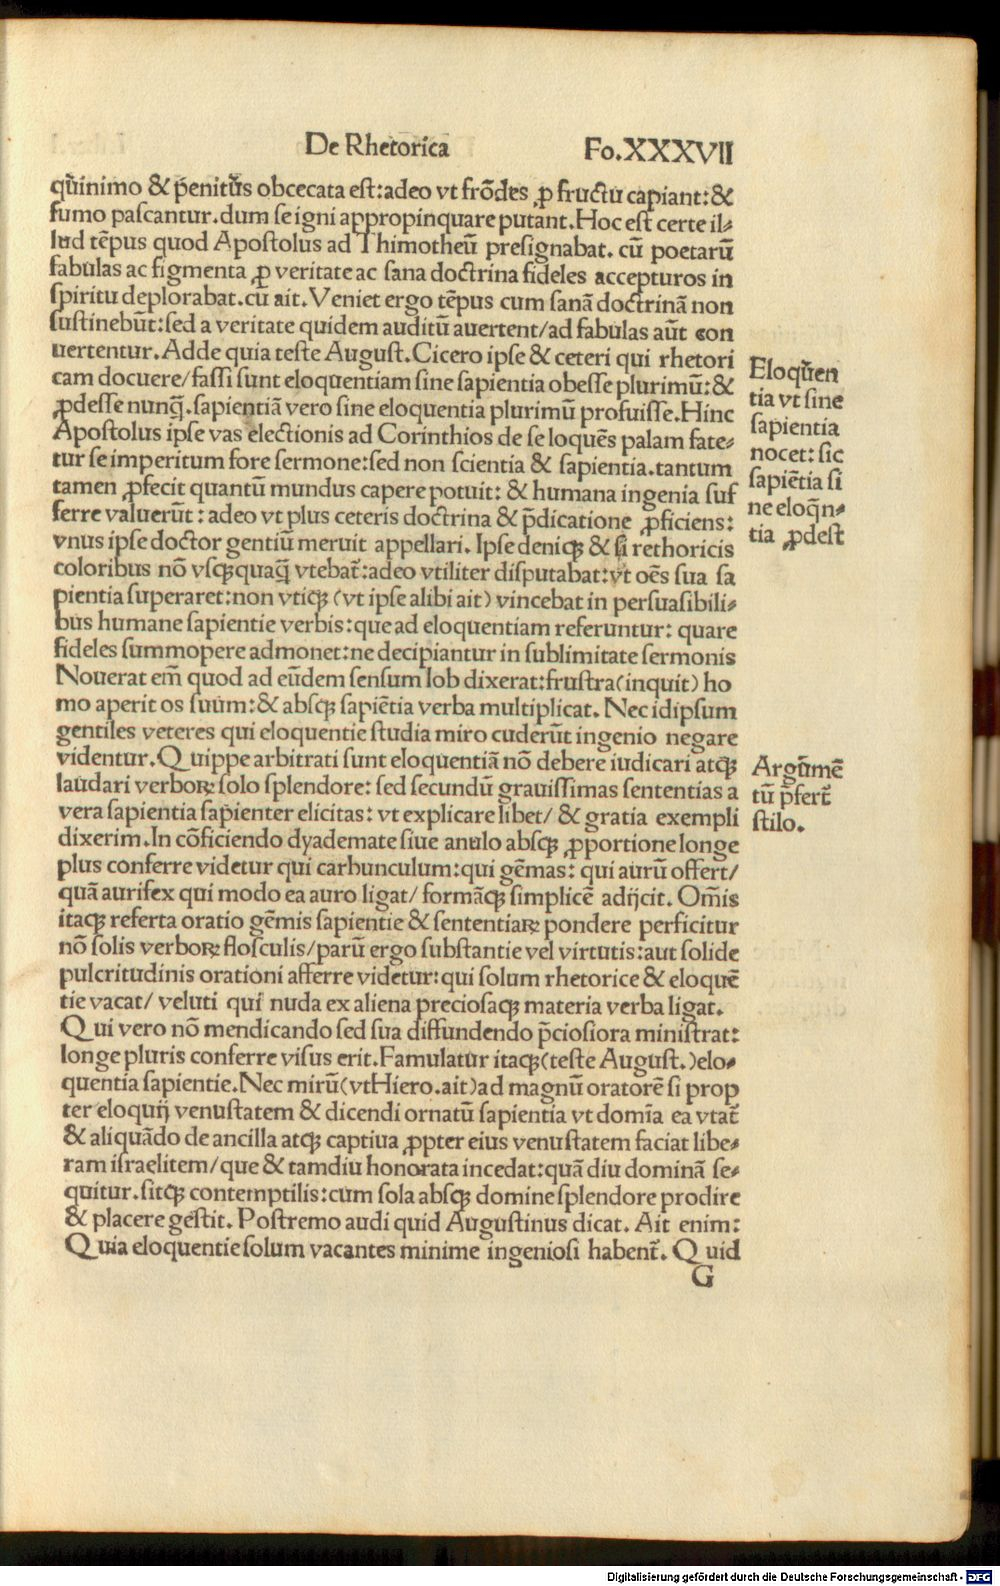 De Rhetorica
Fo.XXXVII
qũinimo & p̄enitus obcecata est:adeo vt frõdes ꝓ fructu capiant:&
fumo pascantur.dum se igni appropinquare putant.Hoc est certe il⸗
lud tẽpus quod Apostolus ad Thimotheũ presignabat. cũ poetarũ
fabulas ac figmenta ꝓ veritate ac sana doctrina fideles accepturos in
spiritu deplorabat.cũ ait.Veniet ergo tẽpus cum sanã doctrinã non
sustinebũt:sed a veritate quidem auditũ auertent/ad fabulas aũt con
uertentur.Adde quia teste August.Cicero ipse & ceteri qui rhetori
cam docuere/fassi sunt eloquentiam sine sapientia obesse plurimũ:&
ꝓdesse nunq̃.sapientiã vero sine eloquentia plurimũ profuisse.Hinc
Apostolus ipse vas electionis ad Corinthios de se loquẽs palam fate⸗
tur se imperitum fore sermone:sed non scientia & sapientia.tantum
tamen ꝓfecit quantũ mundus capere potuit: & humana ingenia suf
ferre valuerũt : adeo vt plus ceteris doctrina & p̄dicatione ꝓficiens:
vnus ipse doctor gentiũ meruit appellari. Ipse deniqꝫ & si rethoricis
coloribus nõ vsqꝫquaq̃ vtebat̃:adeo vtiliter disputabat:vt oẽs sua sa
pientia superaret:non vtiqꝫ (vt ipse alibi ait) vincebat in persuasibili⸗
bus humane sapientie verbis:que ad eloquentiam referuntur: quare
fideles summopere admonet:ne decipiantur in sublimitate sermonis
Nouerat em̃ quod ad eũdem sensum Iob dixerat:frustra(inquit) ho
mo aperit os suum:& absqꝫ sapiẽtia verba multiplicat. Nec idipsum
gentiles veteres qui eloquentie studia miro cuderũt ingenio negare
videntur.Quippe arbitrati sunt eloquentiã nõ debere iudicari atqꝫ
laudari verboꝝ solo splendore: sed secundũ grauissimas sententias a
vera sapientia sapienter elicitas: vt explicare libet/ & gratia exempli
dixerim.In cõficiendo dyademate siue anulo absqꝫ ꝓportione longe
plus conferre videtur qui carbunculum:qui gẽmas: qui aurũ offert/
quã aurifex qui modo ea auro ligat/ formãqꝫ simplicẽ adijcit. Om̃is
itaqꝫ referta oratio gẽmis sapientie & sententiaꝝ pondere perficitur
nõ solis verboꝝ flosculis/parũ ergo substantie vel virtutis:aut solide
pulcritudinis orationi afferre videtur:qui solum rhetorice & eloquẽ
tie vacat/ veluti qui nuda ex aliena preciosaqꝫ materia verba ligat.
Qui vero nõ mendicando sed sua diffundendo p̄ciosiora ministrat:
longe pluris conferre visus erit.Famulatur itaqꝫ(teste August.)elo⸗
quentia sapientie.Nec mirũ(vt Hiero.ait)ad magnũ oratorẽ si prop
ter eloquij venustatem & dicendi ornatũ sapientia vt domĩa ea vtat̃
& aliquãdo de ancilla atqꝫ captiua ꝓpter eius venustatem faciat libe⸗
ram israelitem/que & tamdiu honorata incedat:quã diu dominã se⸗
quitur.sitqꝫ contemptilis:cum sola absqꝫ domine splendore prodire
& placere gestit. Postremo audi quid Augustinus dicat. Ait enim:
Quia eloquentie solum vacantes minime ingeniosi habent̃. Quid
G
Eloqũen
tia vt sine
sapientia
nocet: sic
sapiẽtia si
ne eloq̃n⸗
tia ꝓdest
Argũmẽ
tũ p̄fert̃
stilo.
Digitalisierung gefördert durch die Deutsche Forschungsgemeinschaft - DFG